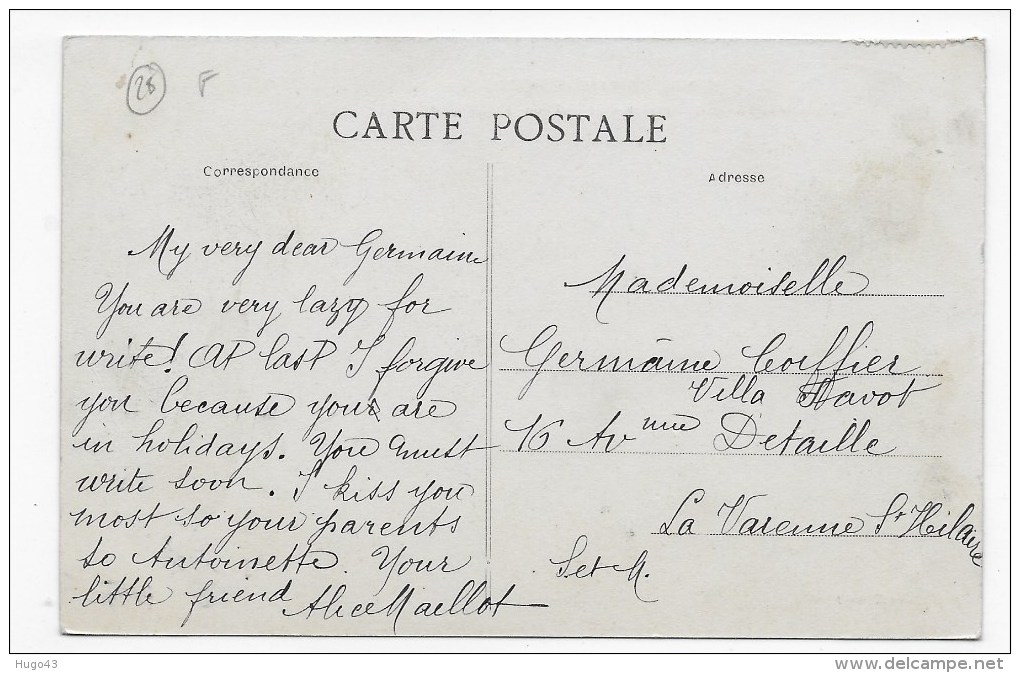 28 F
CARTE POSTALE
Correspondance
Adresse
My very dear Germaine
You are very lazy for
write! At last I forgive
you because your are
in holidays. You must
write soon. I kiss you
most so your parents
so Antoinette. Your
little friend Alice Maillot
Mademoiselle
Germaine Coiffier
Villa Havot
16 Av nue Detaille
La Varenne St Hilaire
S et M.
Hugo43
www.delcampe.net